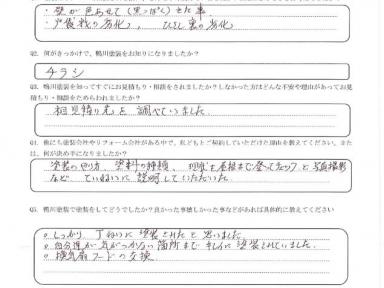 ・壁が色あせて(黒っぽく)きた事
・戸袋板の劣化、ひさし裏の劣化
Q2. 何がきっかけで、鴨川塗装をお知りになりましたか?
チラシ
Q3. 鴨川塗装を知ってすぐにお見積り・相談をされましたか?しなかった方はどんな不安や理由があってお見
積もり・相談をためらわれましたか?
相見積り先を調べていました
Q4. 他にも塗装会社やリフォーム会社がある中で、私どもとご契約していただけた理由を教えてください。また、
何が決め手になりましたか?
塗装のやり方、塗料の種類、現場を屋根まで登ってチェックと写真撮影
など ていねいに説明していただいた。
Q5. 鴨川塗装で塗装をしてどうでしたか?良かった事嬉しかった事などがあれば具体的に教えてください
○しっかり、丁ねいに塗装されたと思いました。
○自分達が気がつかない箇所までキレイに塗装されていました。
○換気扇フードの交換